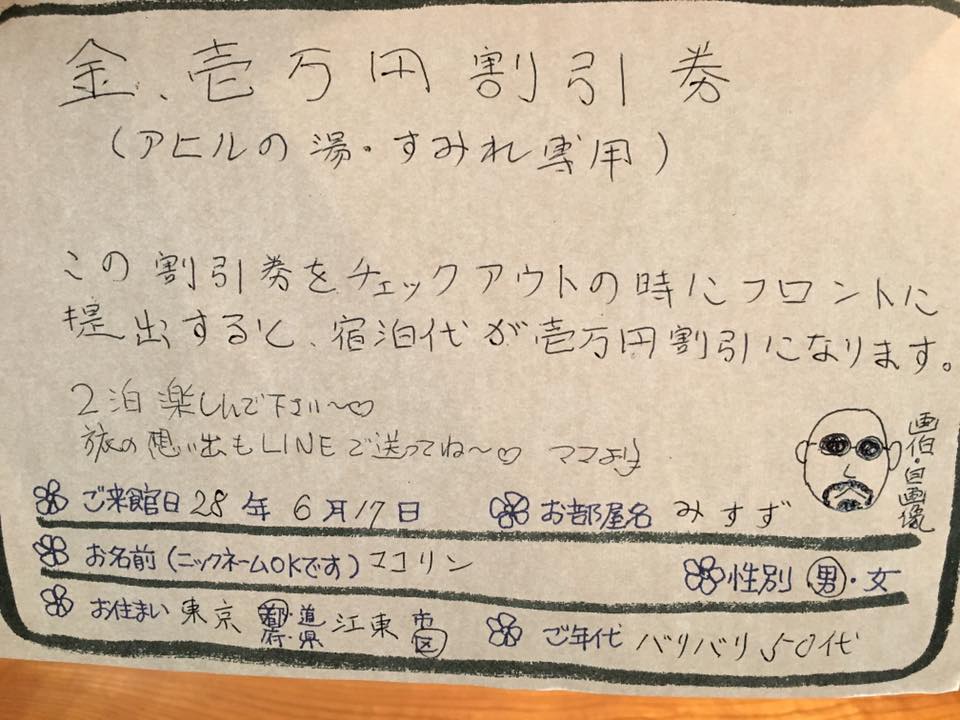 金、壱万円割引券
(アヒルの湯・すみれ専用)
この割引券をチェックアウトの時にフロントに
提出すると、宿泊代が壱万円割引になります。
2泊楽しんで下さい〜♡
旅の想い出もLINEで送ってね〜♡ ママより
画伯・自画像
ご来館日 28年 6月17日 お部屋名 みすず
お名前(ニックネームOKです) ココリン 性別 男・女
お住まい 東京 都・道・府・県 江東 市・区 ご年代 バリバリ50代